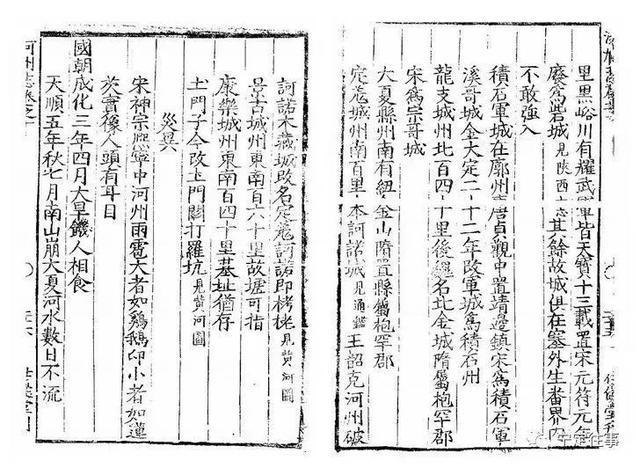 里黑峪川有耀武軍皆天寶十三載置宋元符元年
廢爲砦城見陝西志其餘故城俱在塞外生番界內
不敢強入
積石軍城在廓州唐貞觀中置靖邊鎮宋爲積石軍
溪哥城金大定二十二年改軍城爲積石州
龍支城州北百四十里後魏名北金城隋屬枹罕郡
宋爲宗哥城
大夏縣州南有紐金山隋置縣屬枹罕郡
定羌城州南百里本訶諾城見通鑑王韶克河州破
訶諾木藏城改名定羌訶諾即栲栳見黃河圖
景古城州東南百六十里故壘可指
康樂城州東南百四十里基址猶存
土門子今改玉門關打羅坑見黃河圖
災異
宋神宗熙寧中河州雨雹大者如鷄鵝卵小者如蓮
芡實像人頭有耳目
國朝成化三年四月大旱饑人相食
天順五年秋七月南山崩大夏河水數日不流
河州志卷之